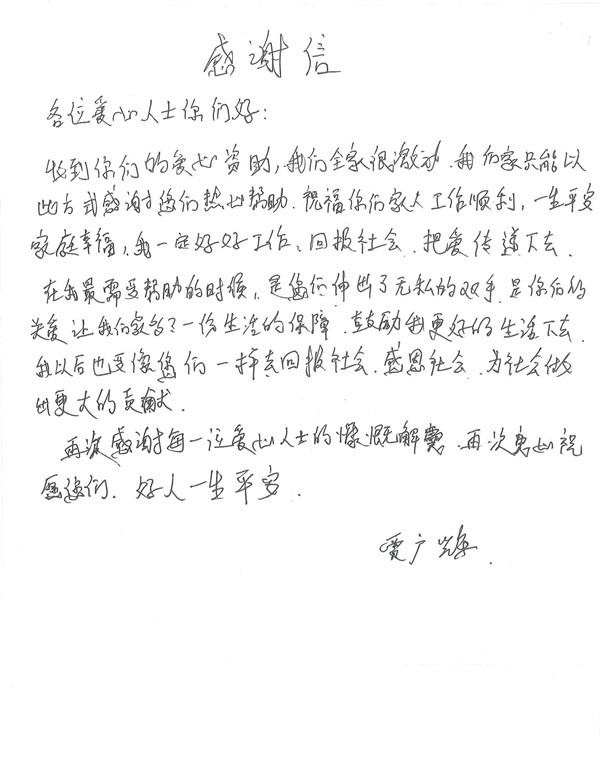 感谢信
各位爱心人士你们好：
收到你们的爱心资助，我们全家很激动.我们家只能以
此方式感谢您们热心帮助.祝福你们家人工作顺利，一生平安
家庭幸福，我一定好好工作，回报社会.把爱传递下去.
在我最需要帮助的时候，是您们伸出了无私的双手.是你们的
关爱让我们家多了一份生活的保障.鼓励我更好的生活下去.
我以后也要像您们一样去回报社会.感恩社会.为社会做
出更大的贡献.
再次感谢每一位爱心人士的慷慨解囊.再次衷心祝
愿您们.好人一生平安.
贾广辉.